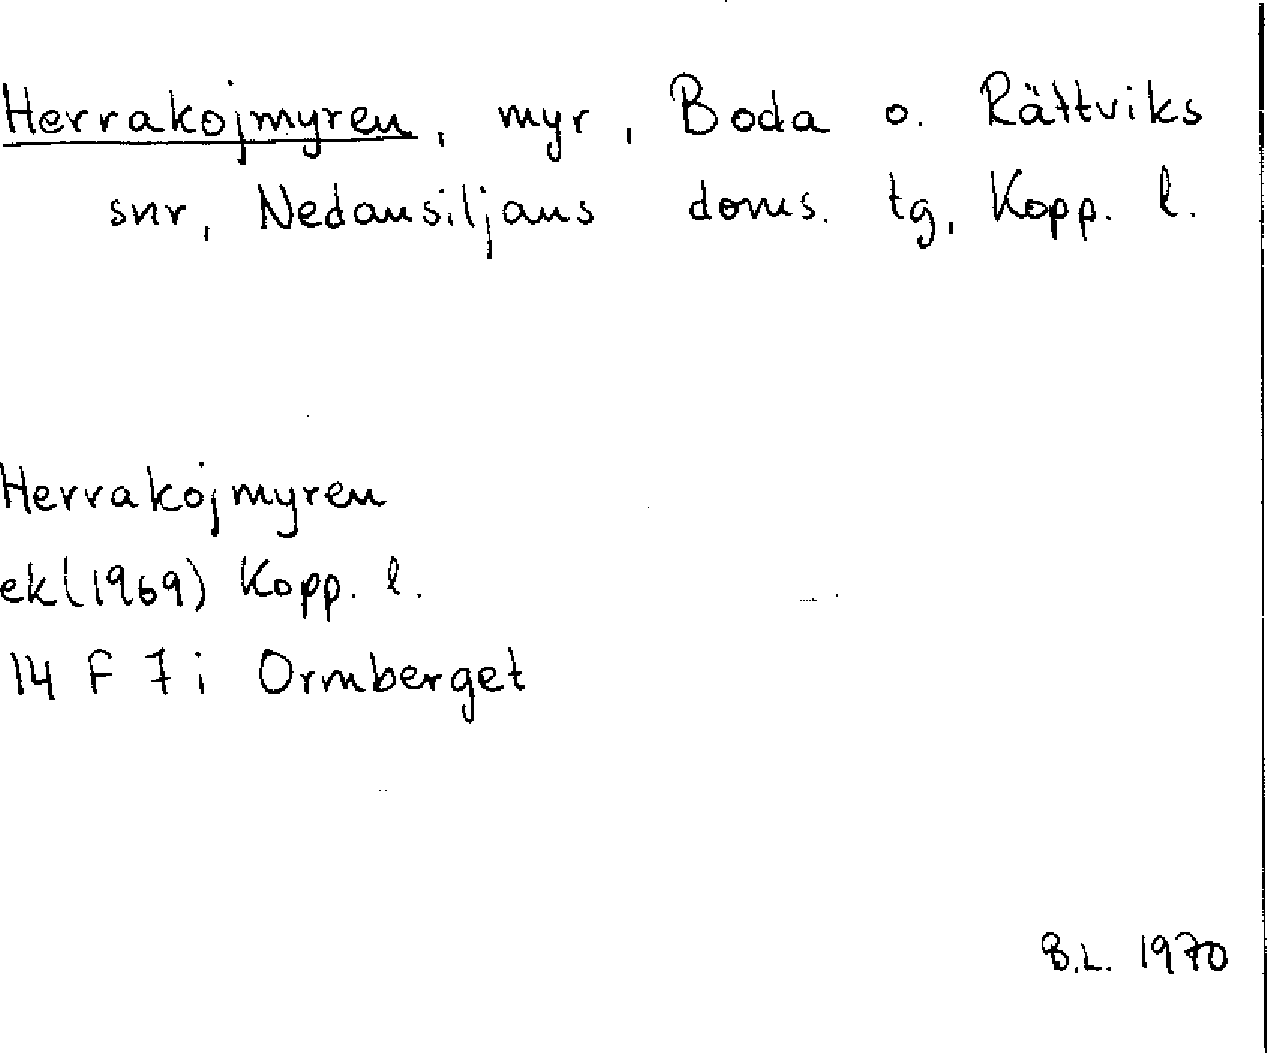 Herrakojmyren, myr, Boda o. Rättviks
snr, Nedansiljans doms. tg, Kopp. l.
Herrakojmyren
ek (1969) Kopp. l.
14 F 7 i Ormberget
B.L. 1970